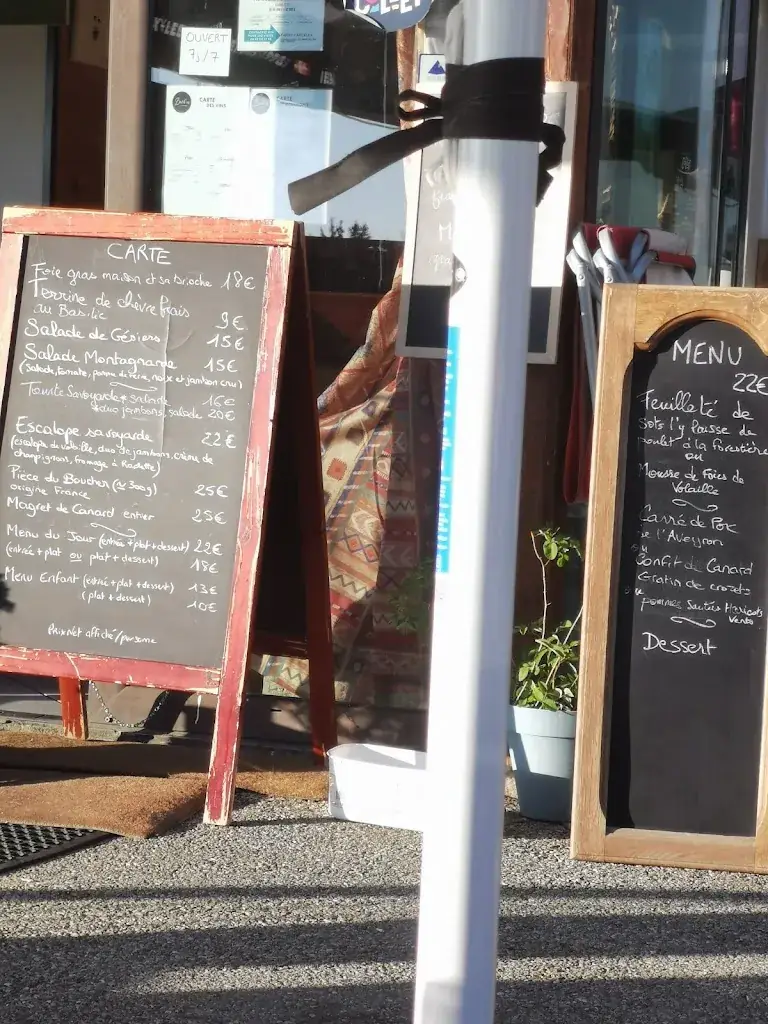 OUVERT
7j/7
CARTE
DES VINS
CARTE
Foie gras maison et sa brioche 18€
Terrine de chèvre frais
au Basilic 9€
Salade de Gésiers 15€
Salade Montagnarde 15€
(Salade, tomate, pomme de terre, noix et jambon cru)
Tourte Savoyarde + salade 16€
jambons, salade 20€
Escalope savoyarde 22€
(escalope de volaille, duo de jambons, crème de
champignons, fromage à Raclette)
Pièce du Boucher (~ 300g) 25€
origine France
Magret de Canard entier 25€
Menu du Jour (entrée + plat + dessert) 22€
(entrée + plat ou plat + dessert) 18€
Menu Enfant (entrée + plat + dessert) 13€
(plat + dessert) 10€
Prix Net affiché/personne
MENU
22€
Feuilleté de
Sots l'y laisse de
poulet à la forestière
ou
Mousse de Foies de
Volaille
Carré de Porc
de l'Aveyron
ou
Confit de Canard
Gratin de crozets
ou
pommes Sautées Haricots
Verts
Dessert